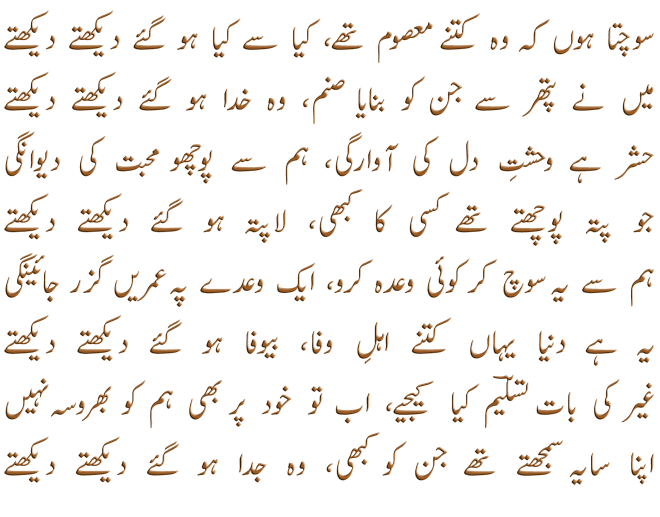 سوچتا ہوں کہ وہ کتنے معصوم تھے، کیا سے کیا ہو گئے دیکھتے دیکھتے
میں نے پتھر سے جن کو بنایا صنم، وہ خدا ہو گئے دیکھتے دیکھتے
حشر ہے وحشتِ دل کی آوارگی، ہم سے پوچھو محبت کی دیوانگی
جو پتہ پوچھتے تھے کسی کا کبھی، لاپتہ ہو گئے دیکھتے دیکھتے
ہم سے یہ سوچ کر کوئی وعدہ کرو، ایک وعدے پہ عمریں گزر جائینگی
یہ ہے دنیا یہاں کتنے اہلِ وفا، بیوفا ہو گئے دیکھتے دیکھتے
غیر کی بات تسلیم کیا کیجیے، اب تو خود پر بھی ہم کو بھروسہ نہیں
اپنا سایہ سمجھتے تھے جن کو کبھی، وہ جدا ہو گئے دیکھتے دیکھتے